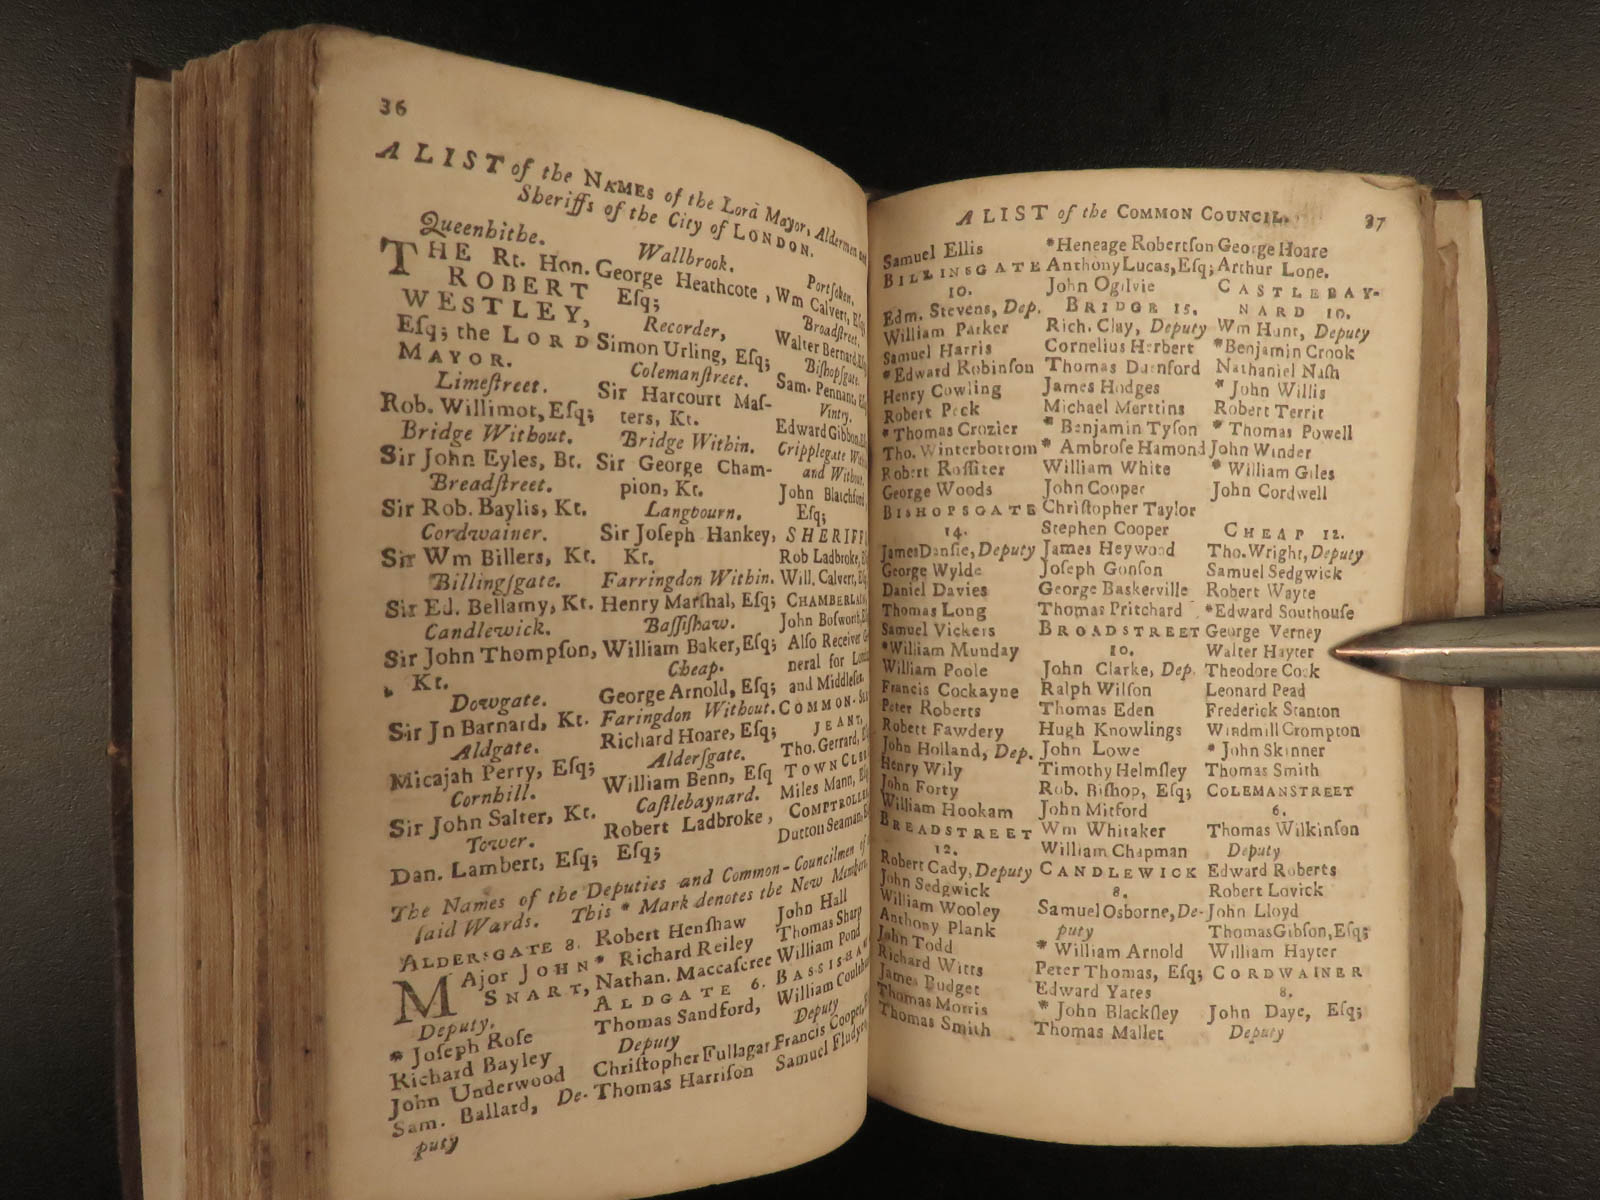 36
A LIST of the NAMES of the Lord Mayor, Aldermen and
Sheriffs of the City of LONDON.
Queenhithe.
THE Rt. Hon.
ROBERT
WESTLEY,
Eſq; the LORD
MAYOR.
Limeſtreet.
Rob. Willimot, Eſq;
Bridge Without.
Sir John Eyles, Bt.
Breadſtreet.
Sir Rob. Baylis, Kt.
Cordwainer.
Sir Wm Billers, Kt.
Billingſgate.
Sir Ed. Bellamy, Kt.
Candlewick.
Sir John Thompſon,
Kt.
Dowgate.
Sir Jn Barnard, Kt.
Aldgate.
Micajah Perry, Eſq;
Cornhill.
Sir John Salter, Kt.
Tower.
Dan. Lambert, Eſq;
Wallbrook.
George Heathcote,
Eſq;
Recorder,
Simon Urling, Eſq;
Colemanſtreet.
Sir Harcourt Maſ-
ters, Kt.
Bridge Within.
Sir George Cham-
pion, Kt.
Langbourn.
Sir Joſeph Hankey,
Kt.
Farringdon Within.
Henry Marſhal, Eſq;
Baſſiſhaw.
William Baker, Eſq;
Cheap.
George Arnold, Eſq;
Faringdon Without.
Richard Hoare, Eſq;
Alderſgate.
William Benn, Eſq
Caſtlebaynard.
Robert Ladbroke,
Eſq;
Portſoken.
Wm Calvert, Eſq;
Broadſtreet.
Walter Bernard, Eſq
Biſhopſgate.
Sam. Pennant, Eſq
Vintry.
Edward Gibbon, Eſ
Cripplegate With
and Without.
John Blatchford
Eſq;
SHERIFF
Rob Ladbroke, E
Will. Calvert, Eſ
CHAMBERLAIN
John Boſworth, E
Alſo Receiver G
neral for Lond
and Middleſex
COMMON-SE
JEANT,
Tho. Gerrard, E
TOWN CLE
Miles Mann, Eſ
COMPTROLLE
Dutton Seaman, E
The Names of the Deputies and Common-Councilmen of
ſaid Wards. This * Mark denotes the New Members
ALDERSGATE 8.
MAjor JOHN
SNART,
Deputy.
* Joſeph Roſe
Richard Bayley
John Underwood
Sam. Ballard, De-
puty
Robert Henſhaw
* Richard Reiley
Nathan. Maccaſcree
ALDGATE 6.
Thomas Sandford,
Deputy
Chriſtopher Fullagar
Thomas Harriſon
John Hall
Thomas Sharp
William Pond
BASSISHAW
William Coulthur
Deputy
Francis Cooper, E
Samuel Fludyer
A LIST of the COMMON COUNCIL. 37
Samuel Ellis
BILLINSGATE
10.
Edm. Stevens, Dep.
William Parker
Samuel Harris
*Edward Robinſon
Henry Cowling
Robert Peck
*Thomas Crozier
Tho. Winterbottom
Robert Roſſiter
George Woods
BISHOPSGATE
14.
James Danſie, Deputy
George Wylde
Daniel Davies
Thomas Long
Samuel Vickers
*William Munday
William Poole
Francis Cockayne
Peter Roberts
Robert Fawdery
John Holland, Dep.
Henry Wily
John Forty
William Hookam
BREADSTREET
12.
Robert Cady, Deputy
John Sedgwick
William Wooley
Anthony Plank
John Todd
Richard Witts
James Budget
Thomas Morris
Thomas Smith
*Heneage Robertſon
Anthony Lucas, Eſq;
John Ogilvie
BRIDGE 15.
Rich. Clay, Deputy
Cornelius Herbert
Thomas Durnford
James Hodges
Michael Merttins
* Benjamin Tyſon
* Ambroſe Hamond
William White
John Cooper
Chriſtopher Taylor
Stephen Cooper
James Heywood
Joſeph Gonſon
George Baskerville
Thomas Pritchard
BROADSTREET
10.
John Clarke, Dep.
Ralph Wilſon
Thomas Eden
Hugh Knowlings
John Lowe
Timothy Helmſley
Rob. Biſhop, Eſq;
John Mitford
Wm Whitaker
William Chapman
CANDLEWICK
8.
Samuel Osborne, De-
puty
* William Arnold
Peter Thomas, Eſq;
Edward Yates
* John Blackſley
Thomas Mallet
George Hoare
Arthur Lone.
CASTLEBAY-
NARD 10.
Wm Hunt, Deputy
*Benjamin Crook
Nathaniel Naſh
* John Willis
Robert Territ
* Thomas Powell
John Winder
* William Giles
John Cordwell
CHEAP 12.
Tho. Wright, Deputy
Samuel Sedgwick
Robert Wayte
*Edward Southouſe
George Verney
Walter Hayter
Theodore Cock
Leonard Pead
Frederick Stanton
Windmill Crompton
* John Skinner
Thomas Smith
COLEMANSTREET
6.
Thomas Wilkinſon
Deputy
Edward Roberts
Robert Lovick
John Lloyd
Thomas Gibſon, Eſq;
William Hayter
CORDWAINER
8.
John Daye, Eſq;
Deputy